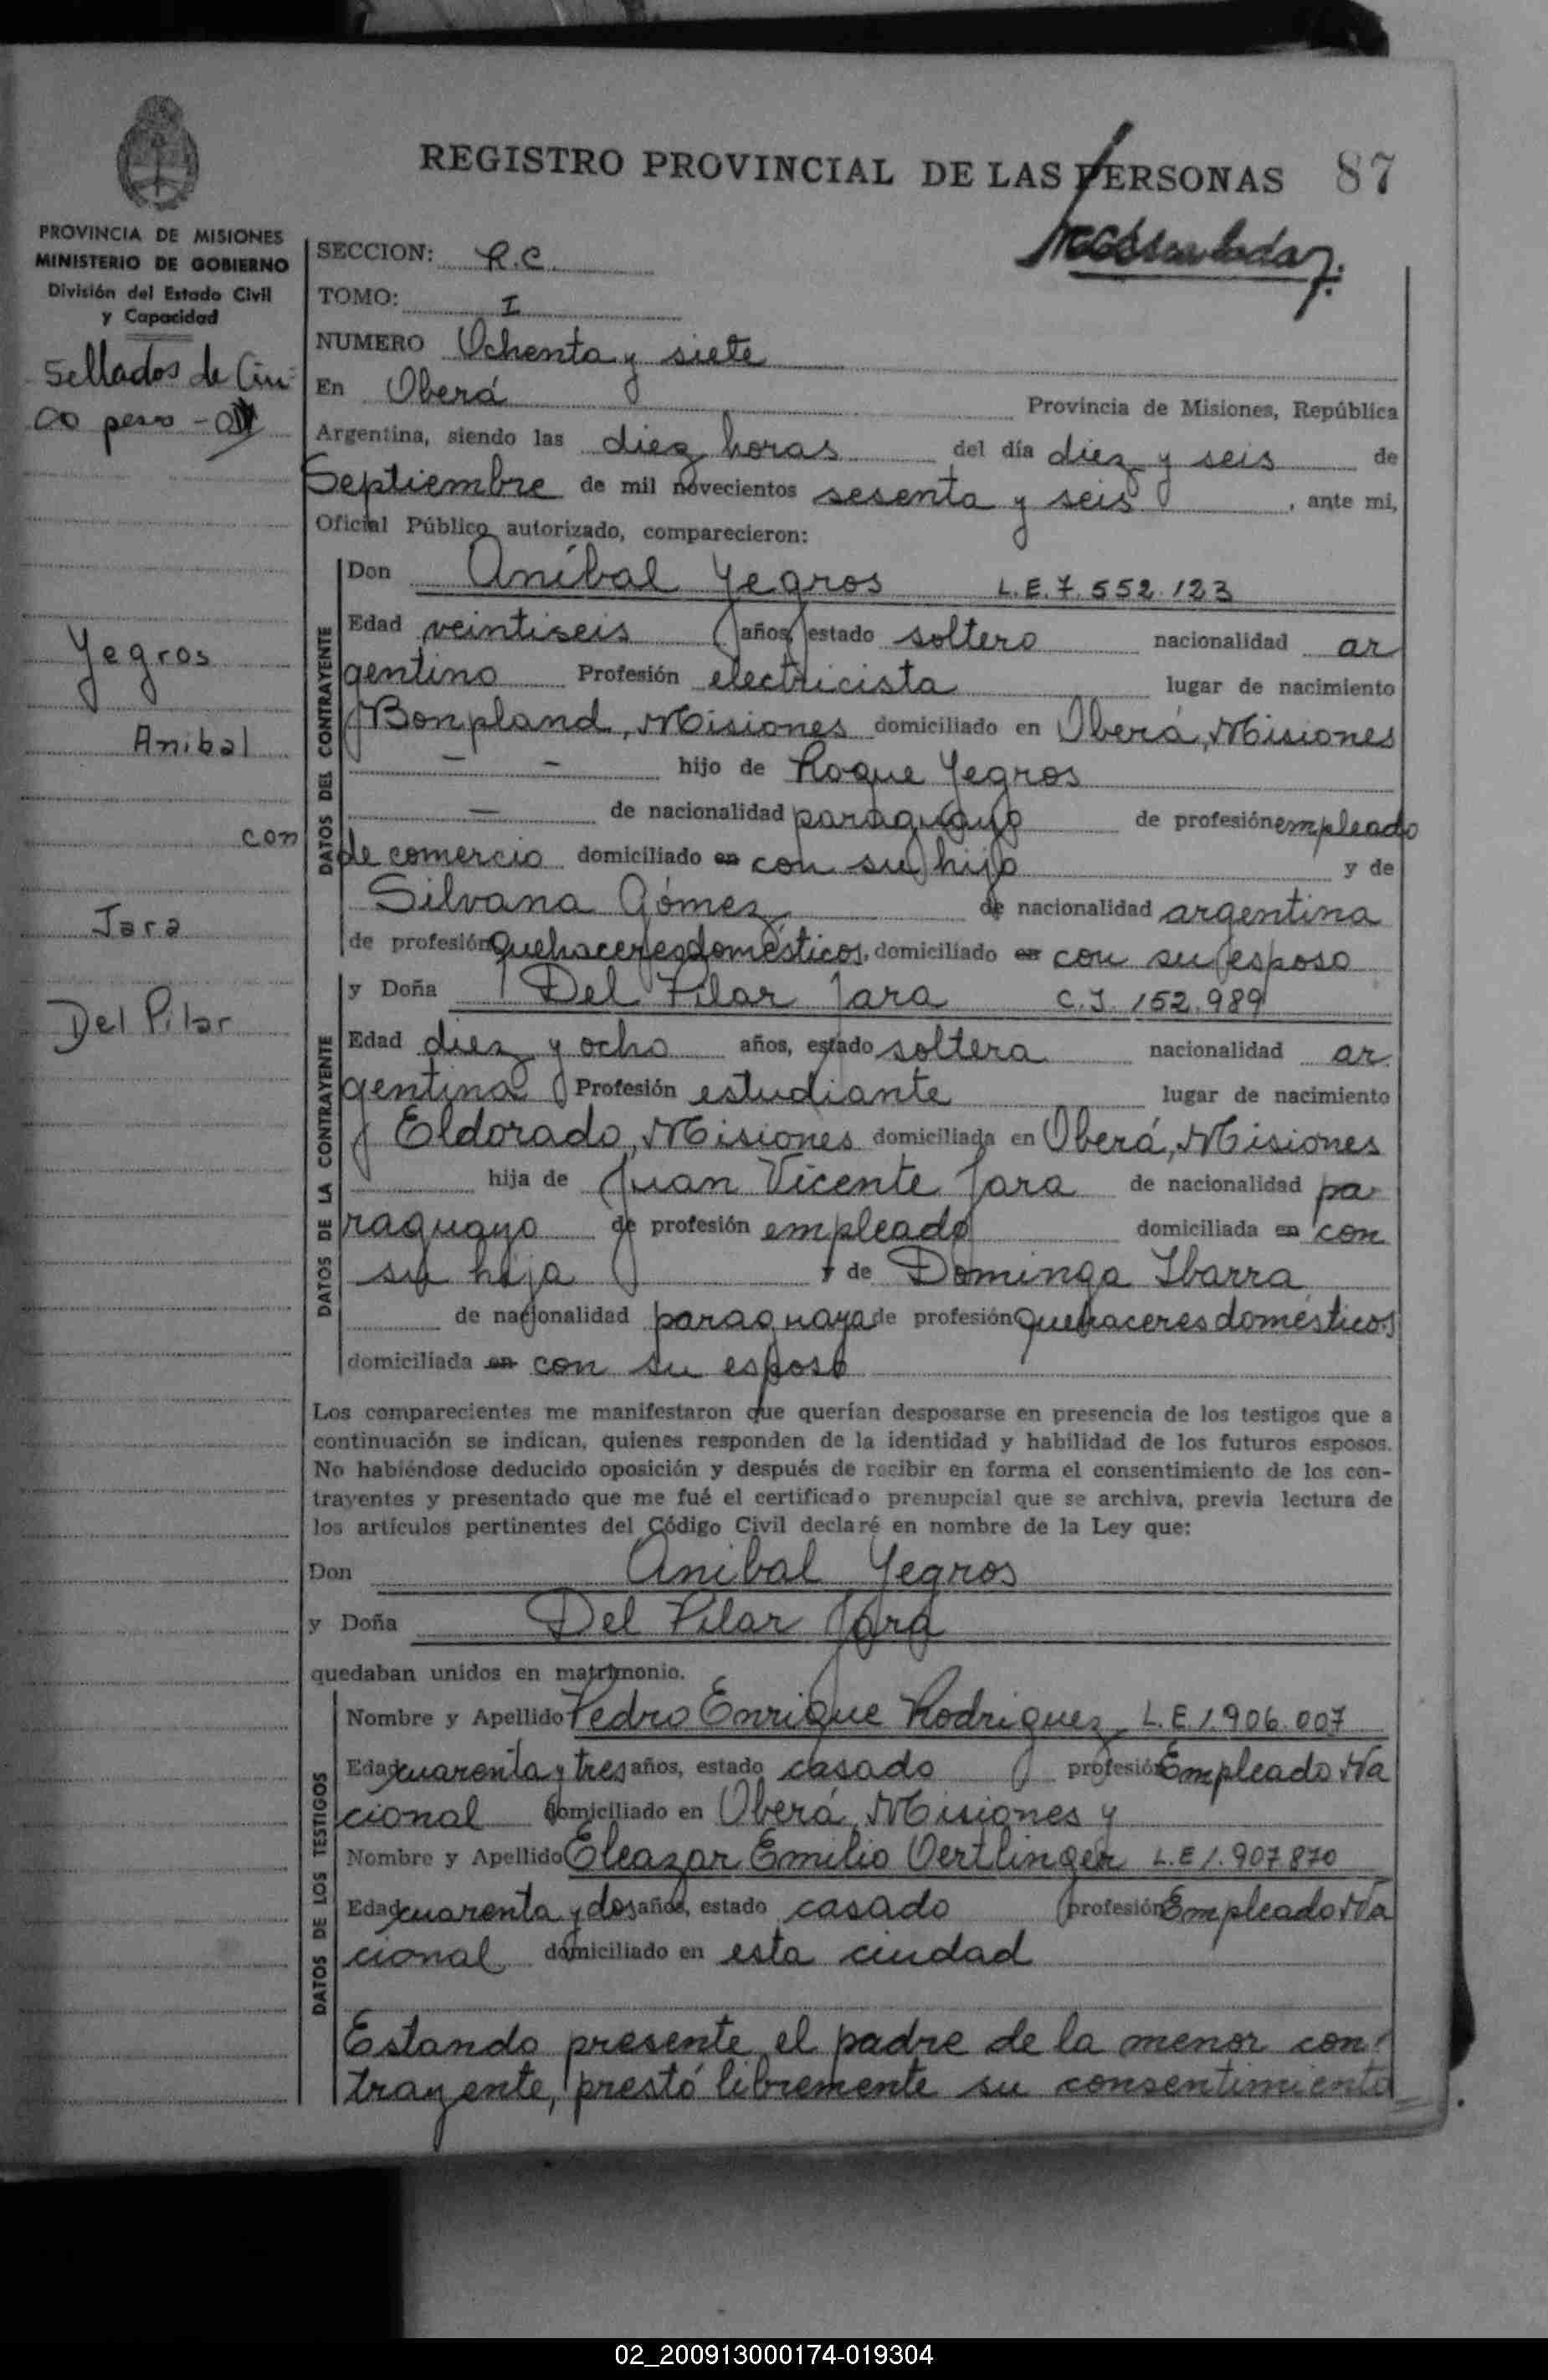 REGISTRO PROVINCIAL DE LAS PERSONAS 87
PROVINCIA DE MISIONES
MINISTERIO DE GOBIERNO
División del Estado Civil
y Capacidad
Sellados de Cin-
co peso
Yegros
Anibal
con
Jara
Del Pilar
SECCION: R.C.
TOMO: I
NUMERO Ochenta y siete
En Oberá Provincia de Misiones, República
Argentina, siendo las diez horas del día diez y seis de
Septiembre de mil novecientos sesenta y seis, ante mi,
Oficial Público autorizado, comparecieron:
DATOS DEL CONTRAYENTE
Don Aníbal Yegros L.E. 7.552.123
Edad veintiseis años, estado soltero nacionalidad ar
gentino Profesión electricista lugar de nacimiento
Bonpland, Misiones domiciliado en Oberá, Misiones
— — hijo de Roque Yegros
— de nacionalidad paraguayo de profesión empleado
de comercio domiciliado en con su hijo y de
Silvana Gómez de nacionalidad argentina
de profesión quehaceres domésticos, domiciliado en con su esposo
DATOS DE LA CONTRAYENTE
y Doña Del Pilar Jara C.I. 152.989
Edad diez y ocho años, estado soltera nacionalidad ar
gentina Profesión estudiante lugar de nacimiento
Eldorado, Misiones domiciliada en Oberá, Misiones
hija de Juan Vicente Jara de nacionalidad pa
raguayo de profesión empleado domiciliada en con
su hija y de Dominga Ibarra
de nacionalidad paraguaya de profesión quehaceres domésticos
domiciliada en con su esposo
Los comparecientes me manifestaron que querían desposarse en presencia de los testigos que a
continuación se indican, quienes responden de la identidad y habilidad de los futuros esposos.
No habiéndose deducido oposición y después de recibir en forma el consentimiento de los con-
trayentes y presentado que me fué el certificado prenupcial que se archiva, previa lectura de
los artículos pertinentes del Código Civil declaré en nombre de la Ley que:
Don Aníbal Yegros
y Doña Del Pilar Jara
quedaban unidos en matrimonio.
DATOS DE LOS TESTIGOS
Nombre y Apellido Pedro Enrique Rodriguez L.E. 1.906.007
Edad cuarenta y tres años, estado casado profesión Empleado Na
cional domiciliado en Oberá, Misiones y
Nombre y Apellido Eleazar Emilio Oertlinger L.E 1.907870
Edad cuarenta y dos años, estado casado profesión Empleado Na
cional domiciliado en esta ciudad
Estando presente el padre de la menor con-
trayente, prestó libremente su consentimiento
02_200913000174-019304